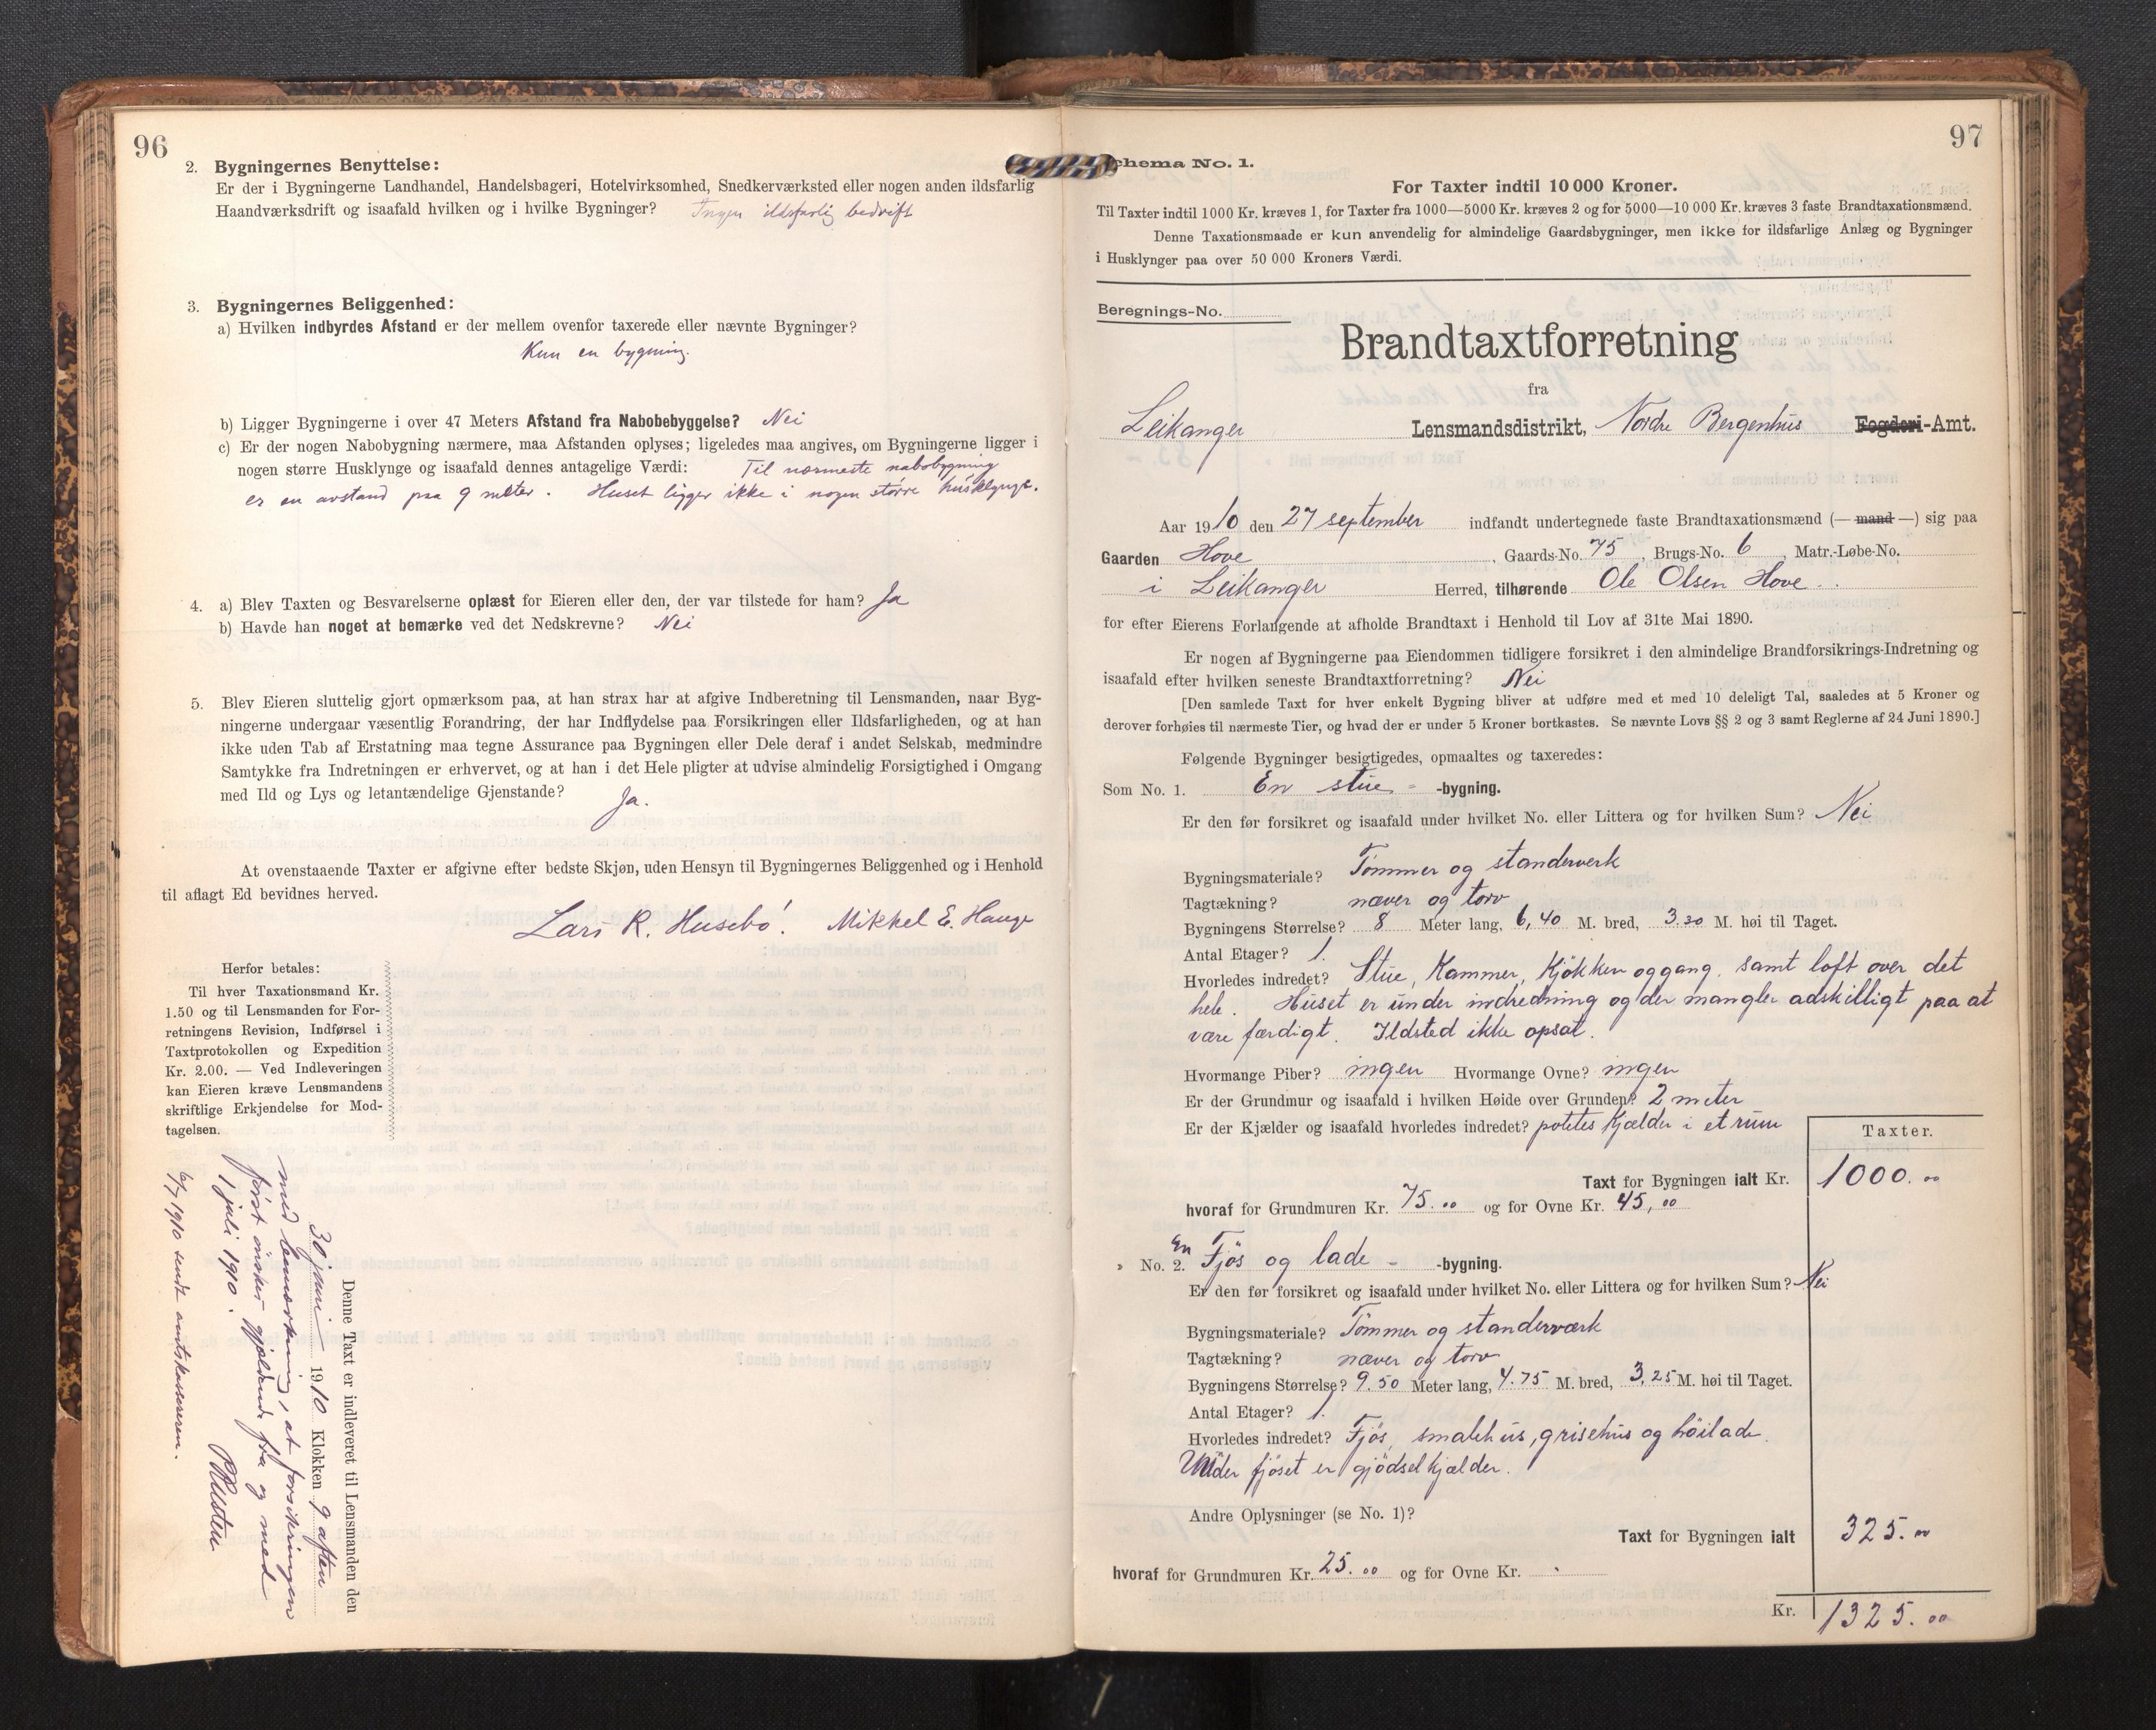 96
2. Bygningernes Benyttelse:
Er der i Bygningerne Landhandel, Handelsbageri, Hotelvirksomhed, Snedkerværksted eller nogen anden ildsfarlig
Haandværksdrift og isaafald hvilken og i hvilke Bygninger? Ingen ildsfarlig bedrift
3. Bygningernes Beliggenhed:
a) Hvilken indbyrdes Afstand er der mellem ovenfor taxerede eller nævnte Bygninger?
Kun en bygning.
b) Ligger Bygningerne i over 47 Meters Afstand fra Nabobebyggelse? Nei
c) Er der nogen Nabobygning nærmere, maa Afstanden oplyses; ligeledes maa angives, om Bygningerne ligger i
nogen større Husklynge og isaafald dennes antagelige Værdi: Til nærmeste nabobygning
er en avstand paa 9 meter. Huset ligger ikke i nogen større husklynge.
4. a) Blev Taxten og Besvarelserne oplæst for Eieren eller den, der var tilstede for ham? Ja
b) Havde han noget at bemærke ved det Nedskrevne? Nei
5. Blev Eieren sluttelig gjort opmærksom paa, at han strax har at afgive Indberetning til Lensmanden, naar Byg-
ningerne undergaar væsentlig Forandring, der har Indflydelse paa Forsikringen eller Ildsfarligheden, og at han
ikke uden Tab af Erstatning maa tegne Assurance paa Bygningen eller Dele deraf i andet Selskab, medmindre
Samtykke fra Indretningen er erhvervet, og at han i det Hele pligter at udvise almindelig Forsigtighed i Omgang
med Ild og Lys og letantændelige Gjenstande? Ja.
At ovenstaaende Taxter er afgivne efter bedste Skjøn, uden Hensyn til Bygningernes Beliggenhed og i Henhold
til aflagt Ed bevidnes herved.
Lars R. Husebø! Mikkel E. Hauge
Herfor betales:
Til hver Taxationsmand Kr.
1.50 og til Lensmanden for For-
retningens Revision, Indførsel i
Taxtprotokollen og Expedition
Kr. 2.00. — Ved Indleveringen
kan Eieren kræve Lensmandens
skriftlige Erkjendelse for Mod-
tagelsen.
Denne Taxt er indleveret til Lensmanden den
30 juni 1910 Klokken 9 aften
med bemærkning, at forsikringen
først ønskes gjældende fra og med
1 juli 1910.
6/7 1910 sendt amtskassereren.
97
Schema No. 1.
For Taxter indtil 10 000 Kroner.
Til Taxter indtil 1000 Kr. kræves 1, for Taxter fra 1000—5000 Kr. kræves 2 og for 5000—10 000 Kr. kræves 3 faste Brandtaxationsmænd.
Denne Taxationsmaade er kun anvendelig for almindelige Gaardsbygninger, men ikke for ildsfarlige Anlæg og Bygninger
i Husklynger paa over 50 000 Kroners Værdi.
Beregnings-No.
Brandtaxtforretning
fra
Leikanger Lensmandsdistrikt, Nordre Bergenhus Fogderi-Amt.
Aar 1910 den 27 september indfandt undertegnede faste Brandtaxationsmænd (— mand —) sig paa
Gaarden Hove, Gaards-No. 75, Brugs-No. 6, Matr.-Løbe-No.
i Leikanger Herred, tilhørende Ole Olsen Hove.
for efter Eierens Forlangende at afholde Brandtaxt i Henhold til Lov af 31te Mai 1890.
Er nogen af Bygningerne paa Eiendommen tidligere forsikret i den almindelige Brandforsikrings-Indretning og
isaafald efter hvilken seneste Brandtaxtforretning? Nei
[Den samlede Taxt for hver enkelt Bygning bliver at udføre med et med 10 deleligt Tal, saaledes at 5 Kroner og
derover forhøies til nærmeste Tier, og hvad der er under 5 Kroner bortkastes. Se nævnte Lovs §§ 2 og 3 samt Reglerne af 24 Juni 1890.]
Følgende Bygninger besigtigedes, opmaaltes og taxeredes:
Som No. 1. En stue- -bygning.
Er den før forsikret og isaafald under hvilket No. eller Littera og for hvilken Sum? Nei
Bygningsmateriale? Tømmer og standerverk
Tagtækning? næver og torv
Bygningens Størrelse? 8 Meter lang, 6,40 M. bred, 3.20 M. høi til Taget.
Antal Etager? 1.
Hvorledes indredet? Stue, Kammer, Kjøkken og gang, samt loft over det
hele. Huset er under indredning og der mangler adskilligt paa at
være færdigt. Ildsted ikke opsat.
Hvormange Piber? ingen Hvormange Ovne? ingen
Er der Grundmur og isaafald i hvilken Høide over Grunden? 2 meter
Er der Kjælder og isaafald hvorledes indredet? potetes kjælder i et rum
Taxter.
Taxt for Bygningen ialt Kr. 1000.00
hvoraf for Grundmuren Kr. 75.00 og for Ovne Kr. 45,00
» No. 2. En Fjøs og lade- -bygning.
Er den før forsikret og isaafald under hvilket No. eller Littera og for hvilken Sum? Nei
Bygningsmateriale? Tømmer og standerværk
Tagtækning? næver og torv
Bygningens Størrelse? 9.50 Meter lang, 4.75 M. bred, 3,25 M. høi til Taget.
Antal Etager? 1.
Hvorledes indredet? Fjøs, smalehus, grisehus og høilade.
Under fjøset er gjødselkjælder.
Andre Oplysninger (se No. 1)?
Taxt for Bygningen ialt 325.00
hvoraf for Grundmuren Kr. 25.00 og for Ovne Kr.
Kr. 1325.00